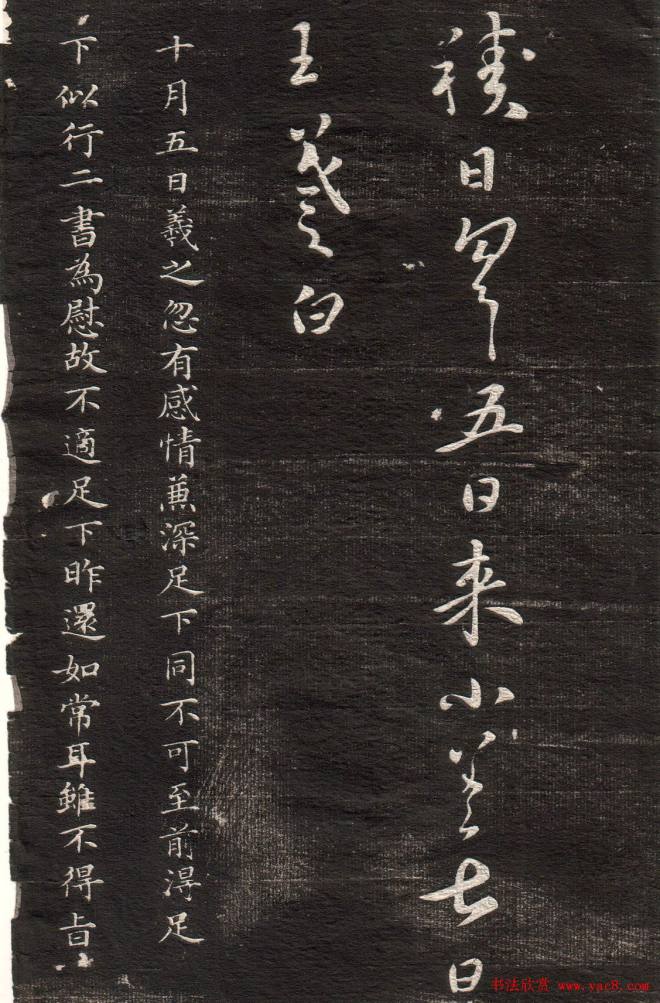 日五日来小差日
王羲之白
十月五日羲之忽有感情兼深足下同不可至前淂足
下似行二書為慰故不適足下昨還如常耳雖不得旨
书法欣赏 www.yac8.com